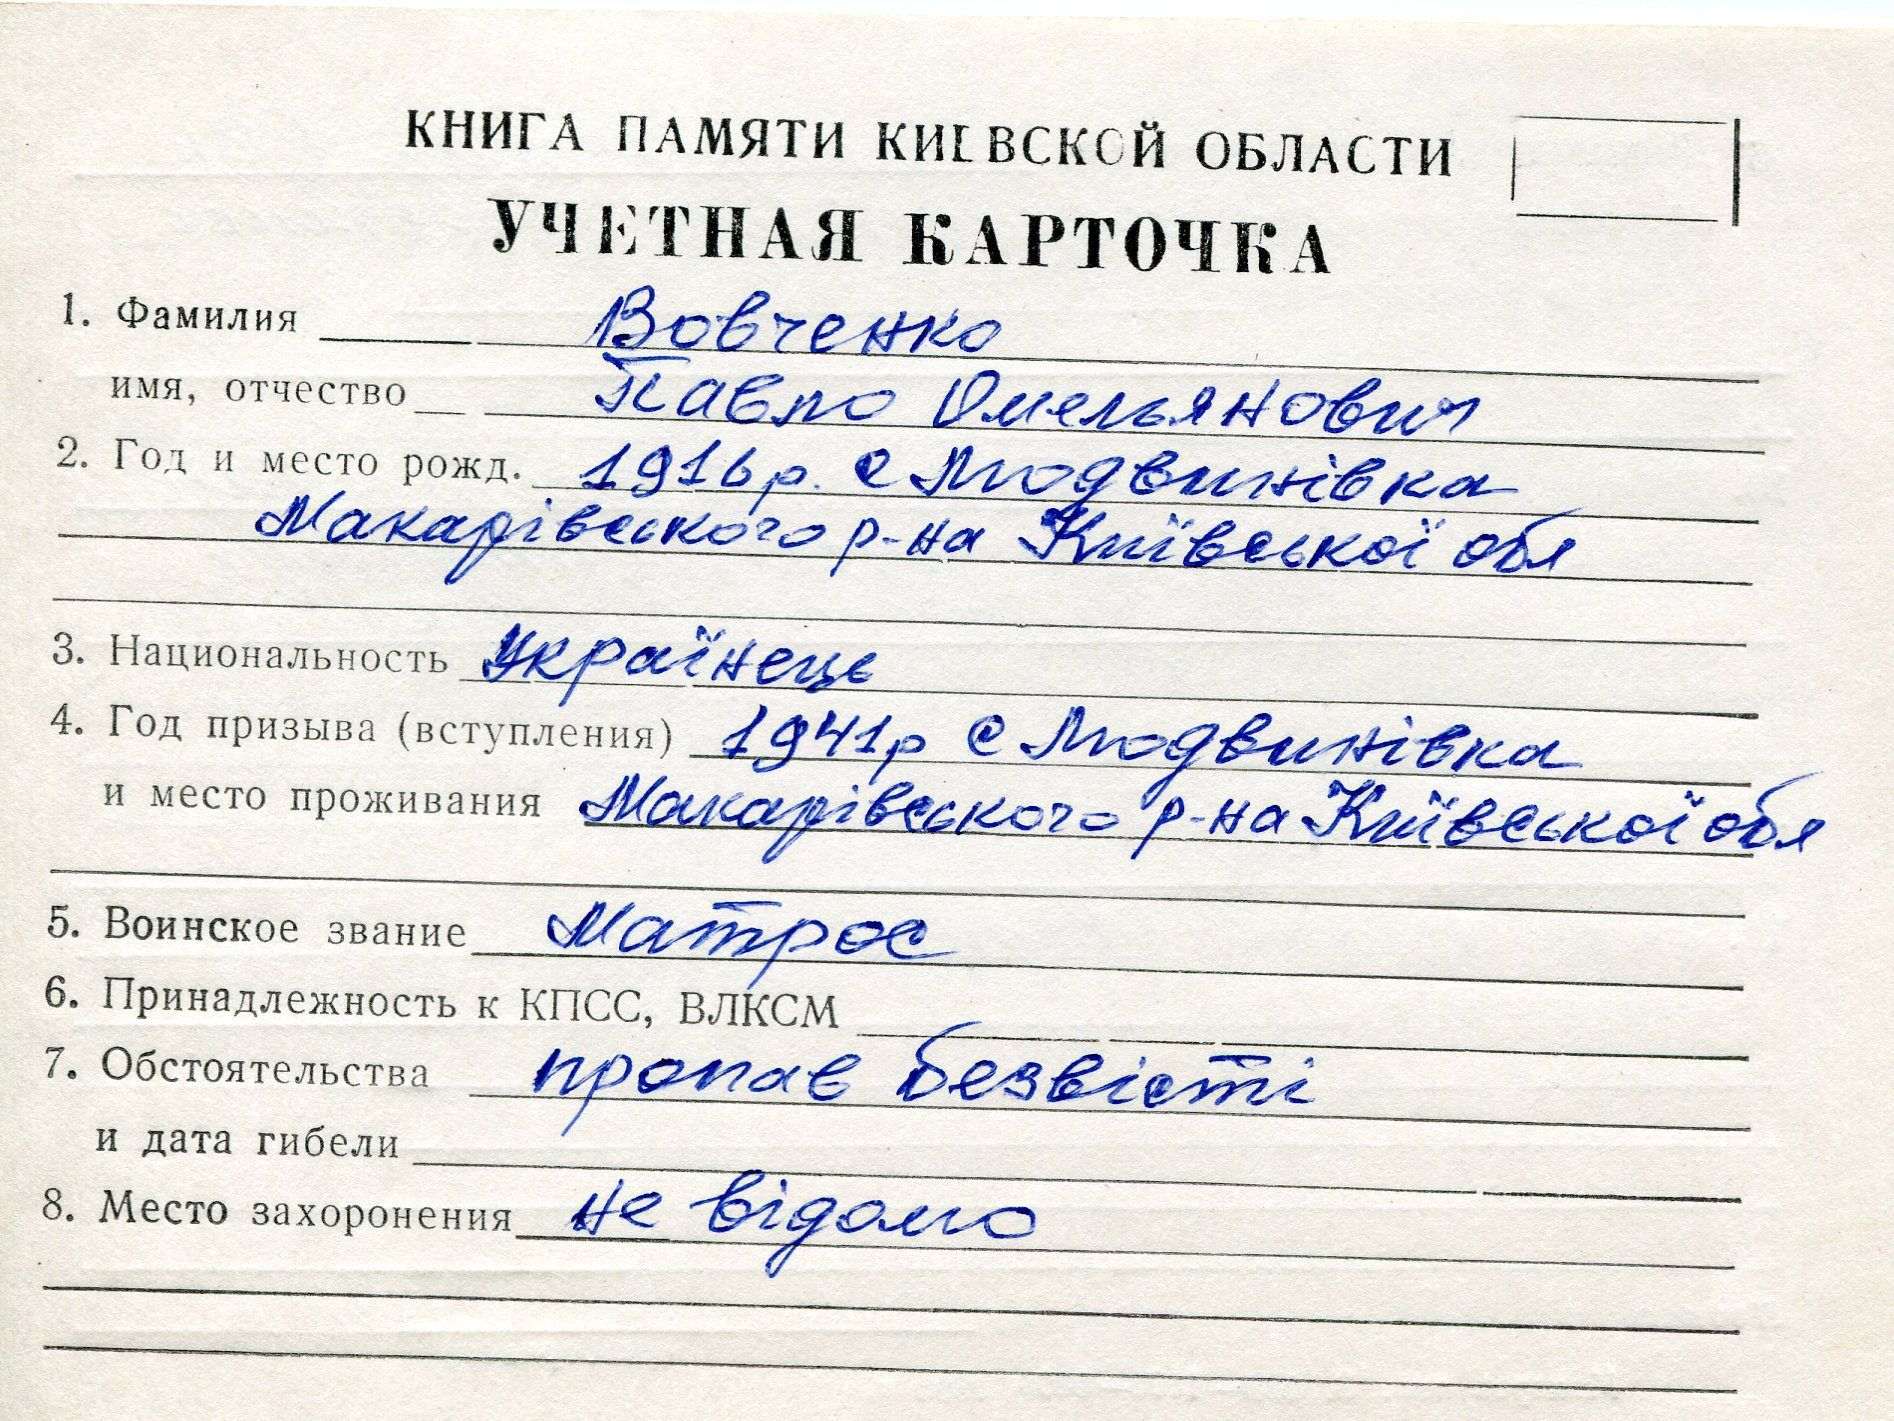 КНИГА ПАМЯТИ КИЕВСКОЙ ОБЛАСТИ
УЧЕТНАЯ КАРТОЧКА
1. Фамилия Вовченко
имя, отчество Павло Омельянович
2. Год и место рожд. 1916 р. с Людвинівка
Макарівського р-на Київської обл
3. Национальность Українець
4. Год призыва (вступления) 1941 р с Людвинівка
и место проживания Макарівського р-на Київської обл
5. Воинское звание Матрос
6. Принадлежность к КПСС, ВЛКСМ
7. Обстоятельства пропав безвісті
и дата гибели
8. Место захоронения не відомо